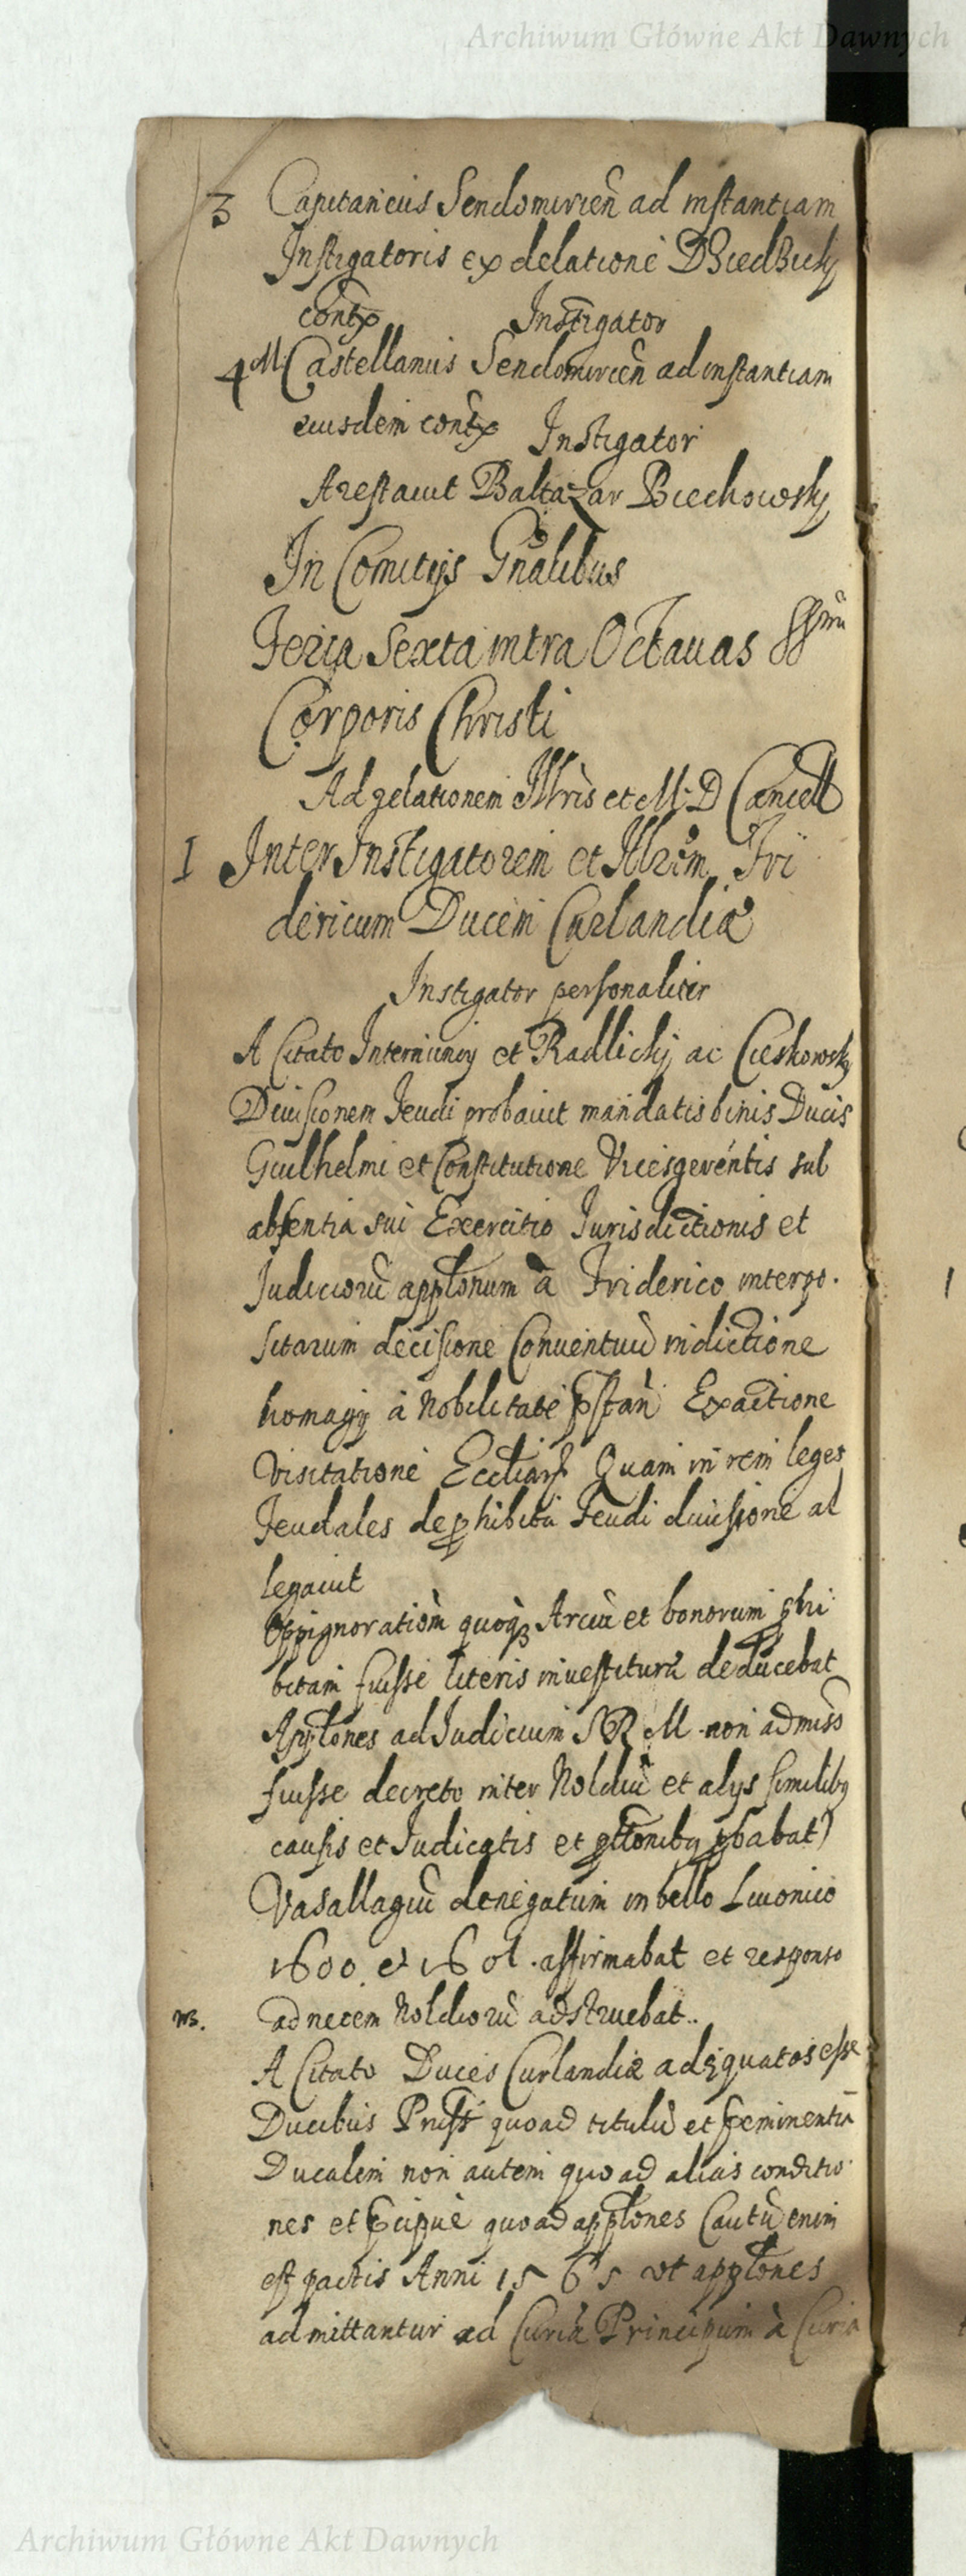 Archiwum Główne Akt Dawnych
3 Capitaneus Sendomirien̄ ad instantiam
Instigatoris ex delatione D
contx Instigator
4 M. Castellanus Sendomirien̄ ad instantiam
eiusdem contx Instigator
Arestauit Baltazar Biechowskÿ
In Comitÿs Gn̄alibus
Feria Sexta intra Octauas SSmi
Corporis Christi
Ad relationem Illris et M. D Cancell
I Inter Instigatorem et Illrem Fri
dericum Ducem Curlandiæ
Instigator personaliter
A Citato Internuncÿ et Radlickÿ ac Cieskowskÿ
Diuisionem feudi probauit mandatis binis Ducis
Guilhelmi et Constitutione Vicesgerentis sub
absentia sui Exercitio Iurisdictionis et
Iudiciorū appltonum à Friderico interpo.
sitarum decisione Conuentuū indictione
homagÿ à Nobilitate pstan̄ Exactione
Visitatione Eccliarū Quam in rem leges
Feudales de phibita Feudi diuisione al
legauit
Oppignorationem quoq̨ Arciū et bonorum phi
bitam fuisse literis inuestiturā deducebat
Appltones ad Iudicium S R M non admiss
fuisse decreto inter Noldiū et alÿs similibq
causis et Iudicatis et pbabat
Vasallagiū denegatum in bello Liuonico
1600 et 1601. affirmabat et responso
NB. ad necem Noldiorū adstruebat..
A Citato Duces Curlandiæ adęquatos esse
Ducibus Pruss quoad titulū et pemimentiā
Ducalem non autem quo ad alias conditio
nes et pcipue quo ad appltones Cautū enim
est pactis Anni 1565 vt appltones
admittantur ad Curiā Principum à Curia
Archiwum Główne Akt Dawnych